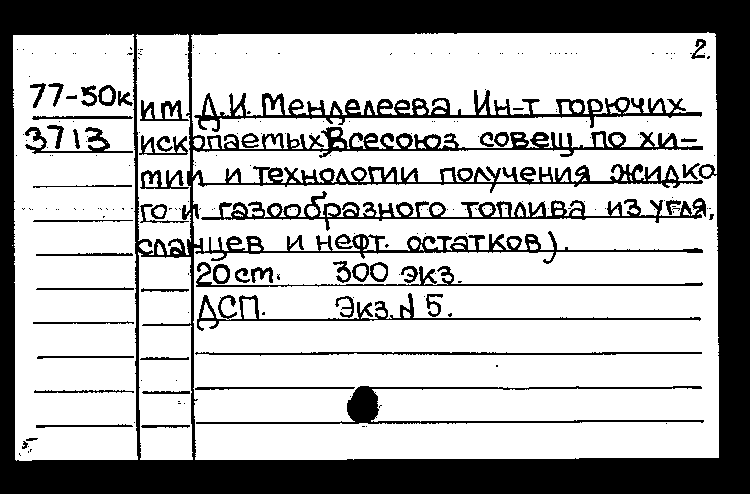 2.
77-50к им. Д.И. Менделеева. Ин-т горючих
3713 ископаемых). Всесоюз. совещ. по хи-
мии и технологии получения жидко
го и газообразного топлива из угля,
сланцев и нефт. остатков).
20 ст. 300 экз.
ДСП. Экз. N 5.